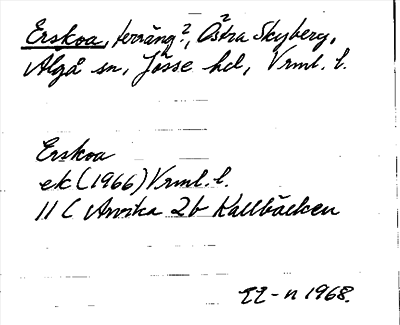 Erskoa, terräng?, Östra Skyberg,
Älgå sn, Jösse hd, Vrml. l.
Erskoa
ek (1966) Vrml. l.
11 C Arvika 2b Kallbäcken
1968.